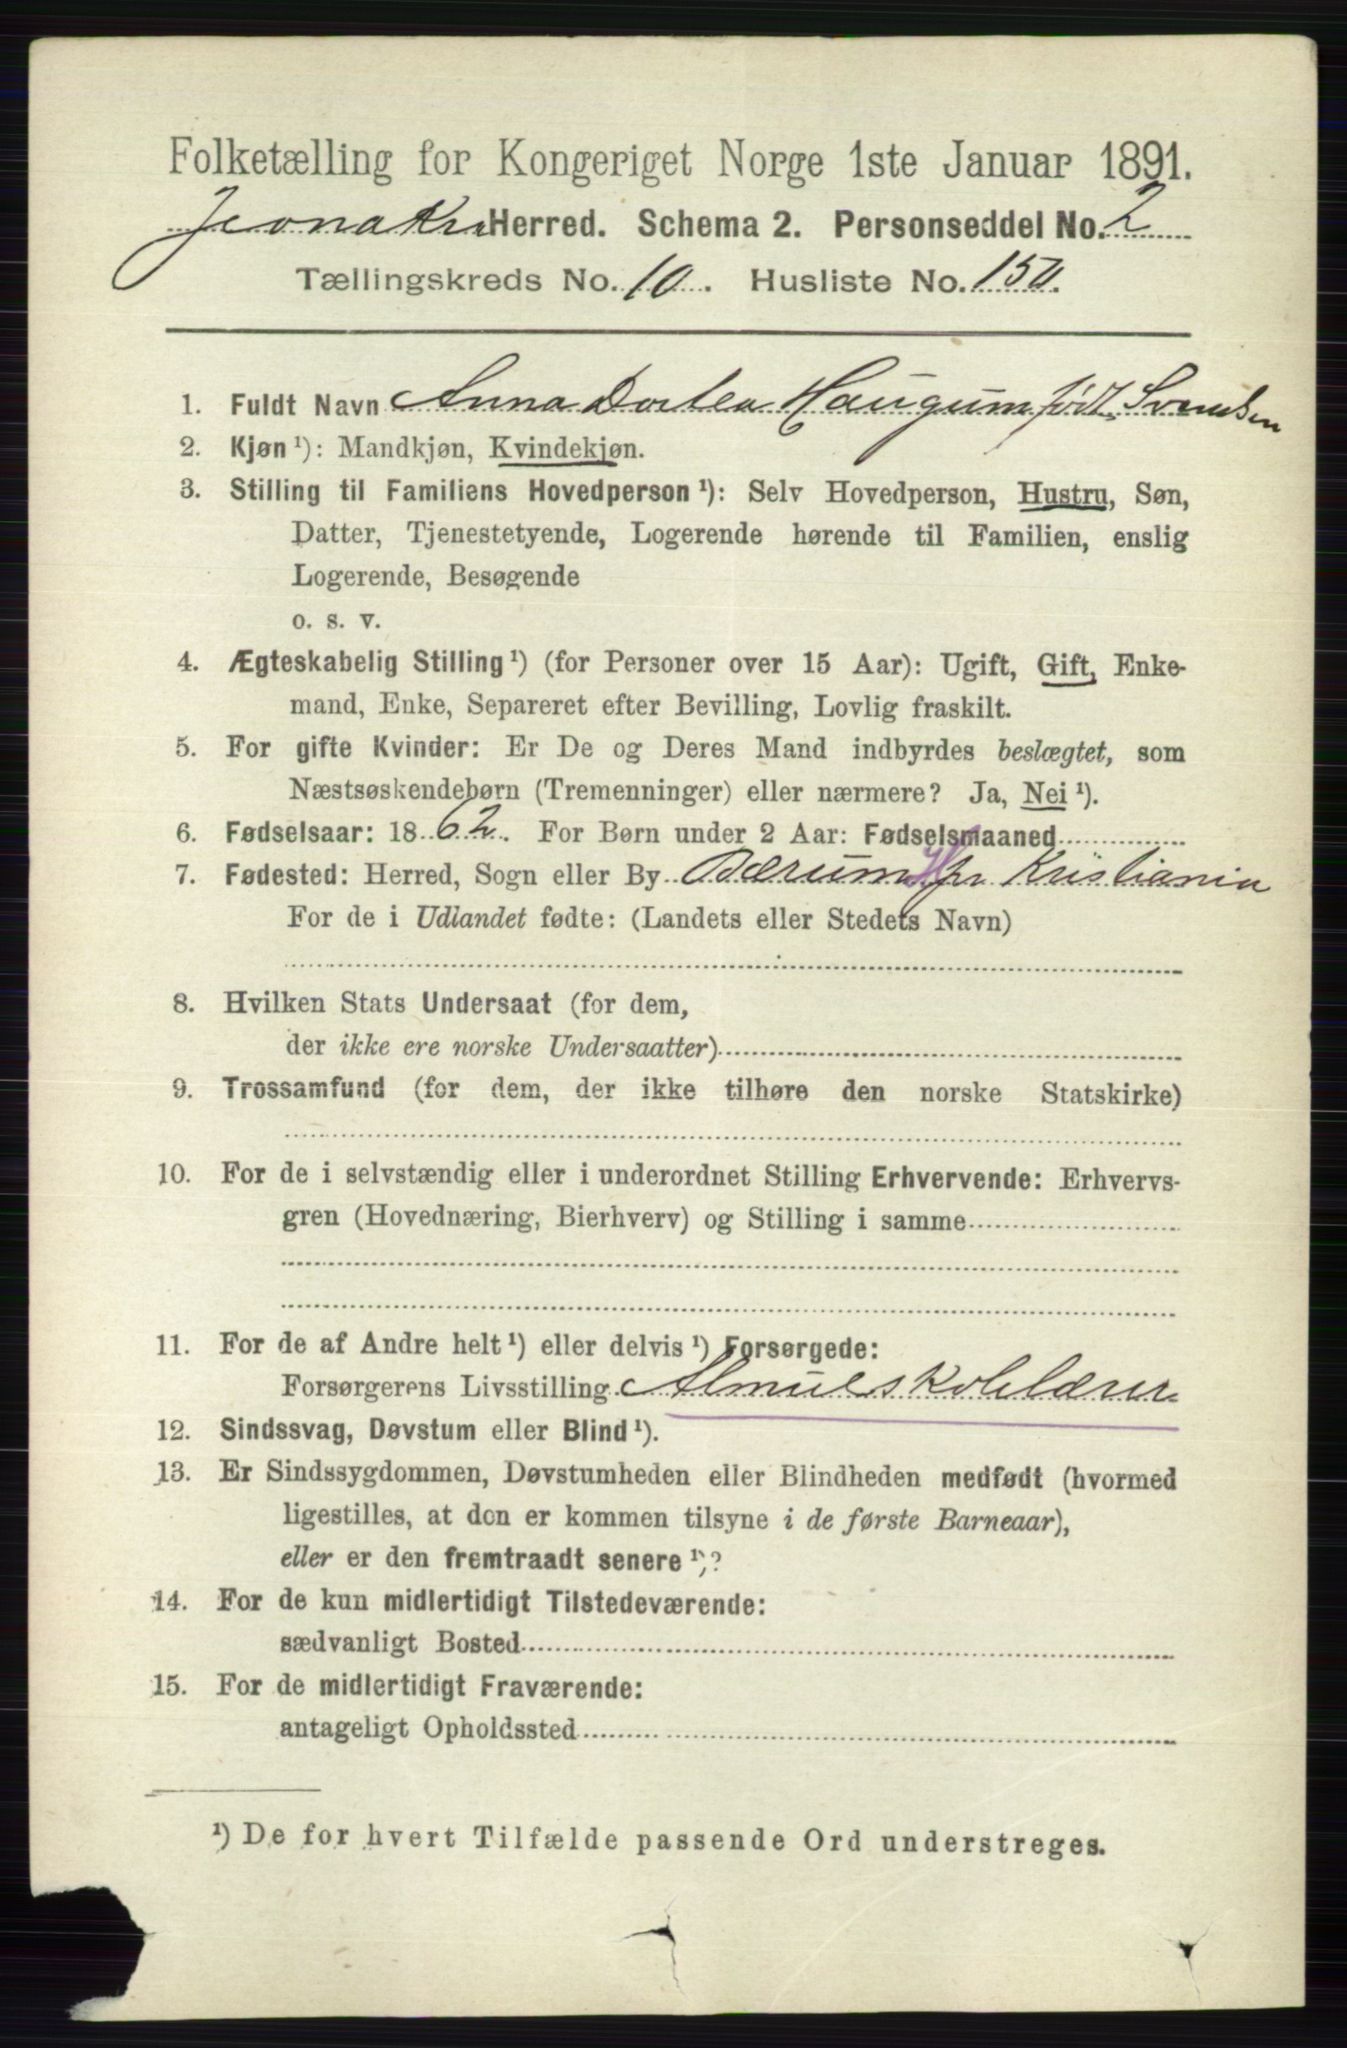 Folketælling for Kongeriget Norge 1ste Januar 1891.
Jevnaker Herred. Schema 2. Personseddel No. 2
Tællingskreds No. 10. Husliste No. 150.
1. Fuldt Navn Anna Dortea Haugum født Svendsen
2. Kjøn ¹): Mandkjøn, Kvindekjøn.
3. Stilling til Familiens Hovedperson ¹): Selv Hovedperson, Hustru, Søn,
Datter, Tjenestetyende, Logerende hørende til Familien, enslig
Logerende, Besøgende
o. s. v.
4. Ægteskabelig Stilling ¹) (for Personer over 15 Aar): Ugift, Gift, Enke-
mand, Enke, Separeret efter Bevilling, Lovlig fraskilt.
5. For gifte Kvinder: Er De og Deres Mand indbyrdes beslægtet, som
Næstsøskendebørn (Tremenninger) eller nærmere? Ja, Nei ¹).
6. Fødselsaar: 1862. For Børn under 2 Aar: Fødselsmaaned
7. Fødested: Herred, Sogn eller By Bærum H pr Kristiania
For de i Udlandet fødte: (Landets eller Stedets Navn)
8. Hvilken Stats Undersaat (for dem,
der ikke ere norske Undersaatter)
9. Trossamfund (for dem, der ikke tilhøre den norske Statskirke)
10. For de i selvstændig eller i underordnet Stilling Erhvervende: Erhvervs-
gren (Hovednæring, Bierhverv) og Stilling i samme
11. For de af Andre helt ¹) eller delvis ¹) Forsørgede:
Forsørgerens Livsstilling Almueskolelærer
12. Sindssvag, Døvstum eller Blind ¹).
13. Er Sindssygdommen, Døvstumheden eller Blindheden medfødt (hvormed
ligestilles, at den er kommen tilsyne i de første Barneaar),
eller er den fremtraadt senere ¹)?
14. For de kun midlertidigt Tilstedeværende:
sædvanligt Bosted
15. For de midlertidigt Fraværende:
antageligt Opholdssted
¹) De for hvert Tilfælde passende Ord understreges.